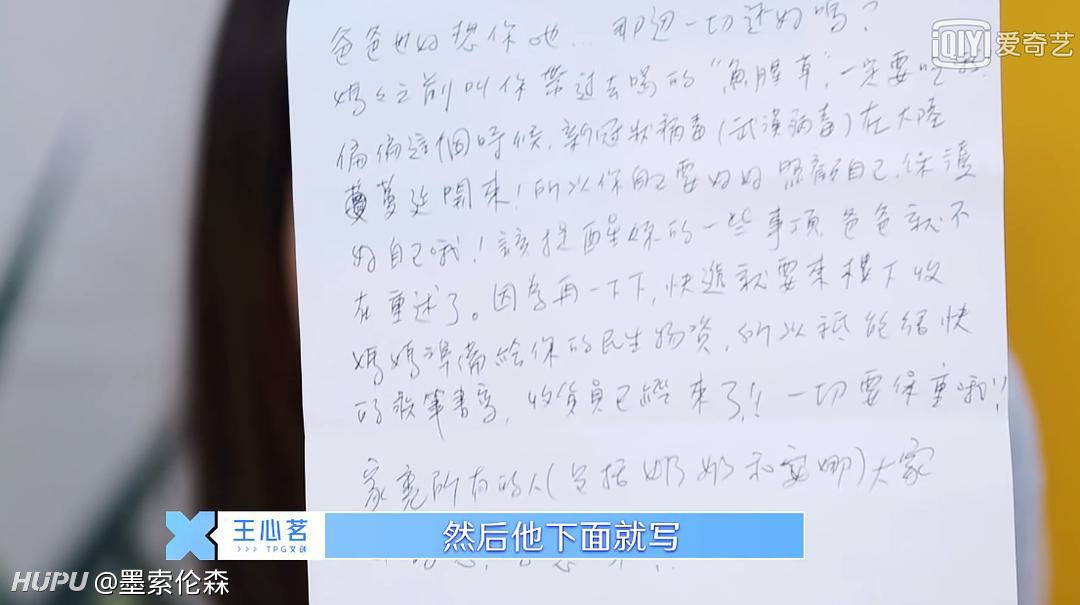 爸爸也好想你吔... 那边一切还好嗎?
iQIYI 爱奇艺
媽媽之前叫你带过去喝的"魚腥草",一定要
偏偏這個時候,新冠狀病毒(武漢病毒)在大陸
蔓延開來!所以你自己要好好照顧自己,保護
好自己哦!該提醒妳的一些事項,爸爸就不
在重述了。因为再一下下,快遞就要來樓下收
媽媽準備給你的民生物資,所以祗能很快
的救筆書寫,收貨員已經來了!!一切要保重哦!!
家裏所有的人(包括奶奶和安娜)大家
王心茗
>>> TPG文创
然后他下面就写
HUPU @墨索伦森